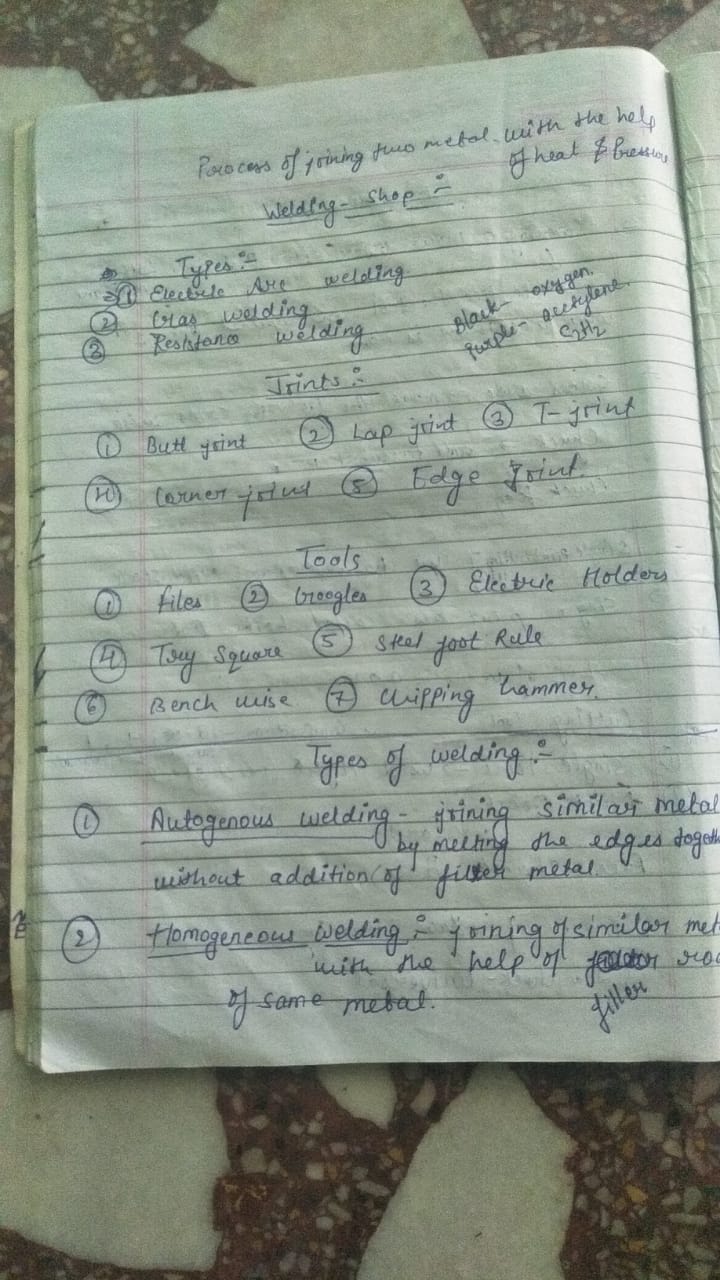 Process of joining two metal with the help
of heat & Pressure
Welding-Shop :-
Types :-
① Electric Arc welding
② Gas welding
③ Resistance welding
Black- oxygen.
Purple- acetylene.
C2H2
Joints :-
① Butt joint ② Lap joint ③ T-joint
④ Corner joint ⑤ Edge Joint.
Tools
① files ② Googles ③ Electric Holders
④ Try Square ⑤ Steel foot Rule
⑥ Bench wise ⑦ Chipping hammer.
Types of welding :-
① Autogenous welding - joining similar metal
by melting the edges togeth
without addition of filler metal.
② Homogeneous welding :- joining of similar met
with the help of ro
filler
of same metal.